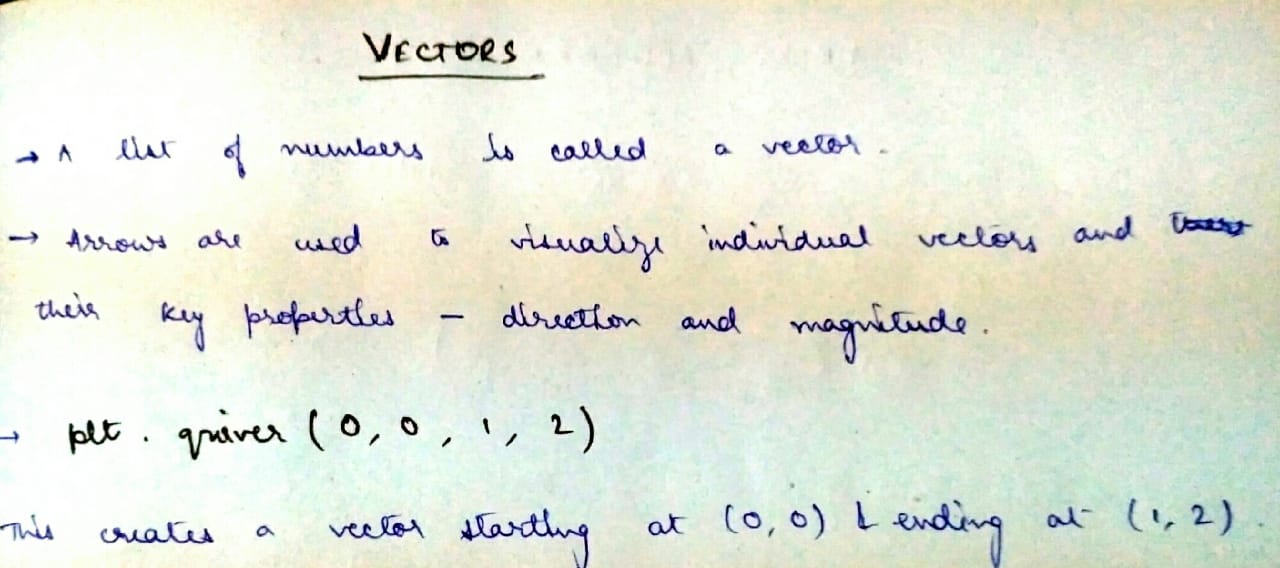 VECTORS
→ A list of numbers is called a vector.
→ Arrows are used to visualize individual vectors and
their key properties – direction and magnitude.
→ plt . quiver (0, 0, 1, 2)
This creates a vector starting at (0, 0) & ending at (1, 2).